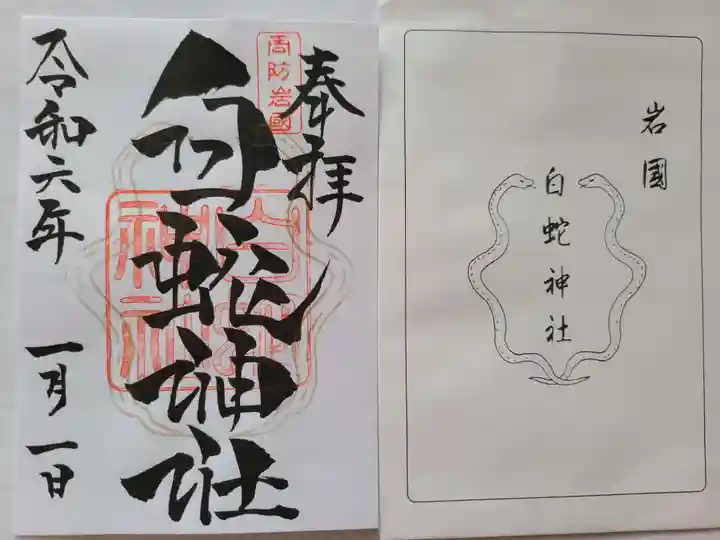 奉拝
周防岩國
白蛇神社
白蛇神社
令和六年 一月一日
岩國
白蛇神社